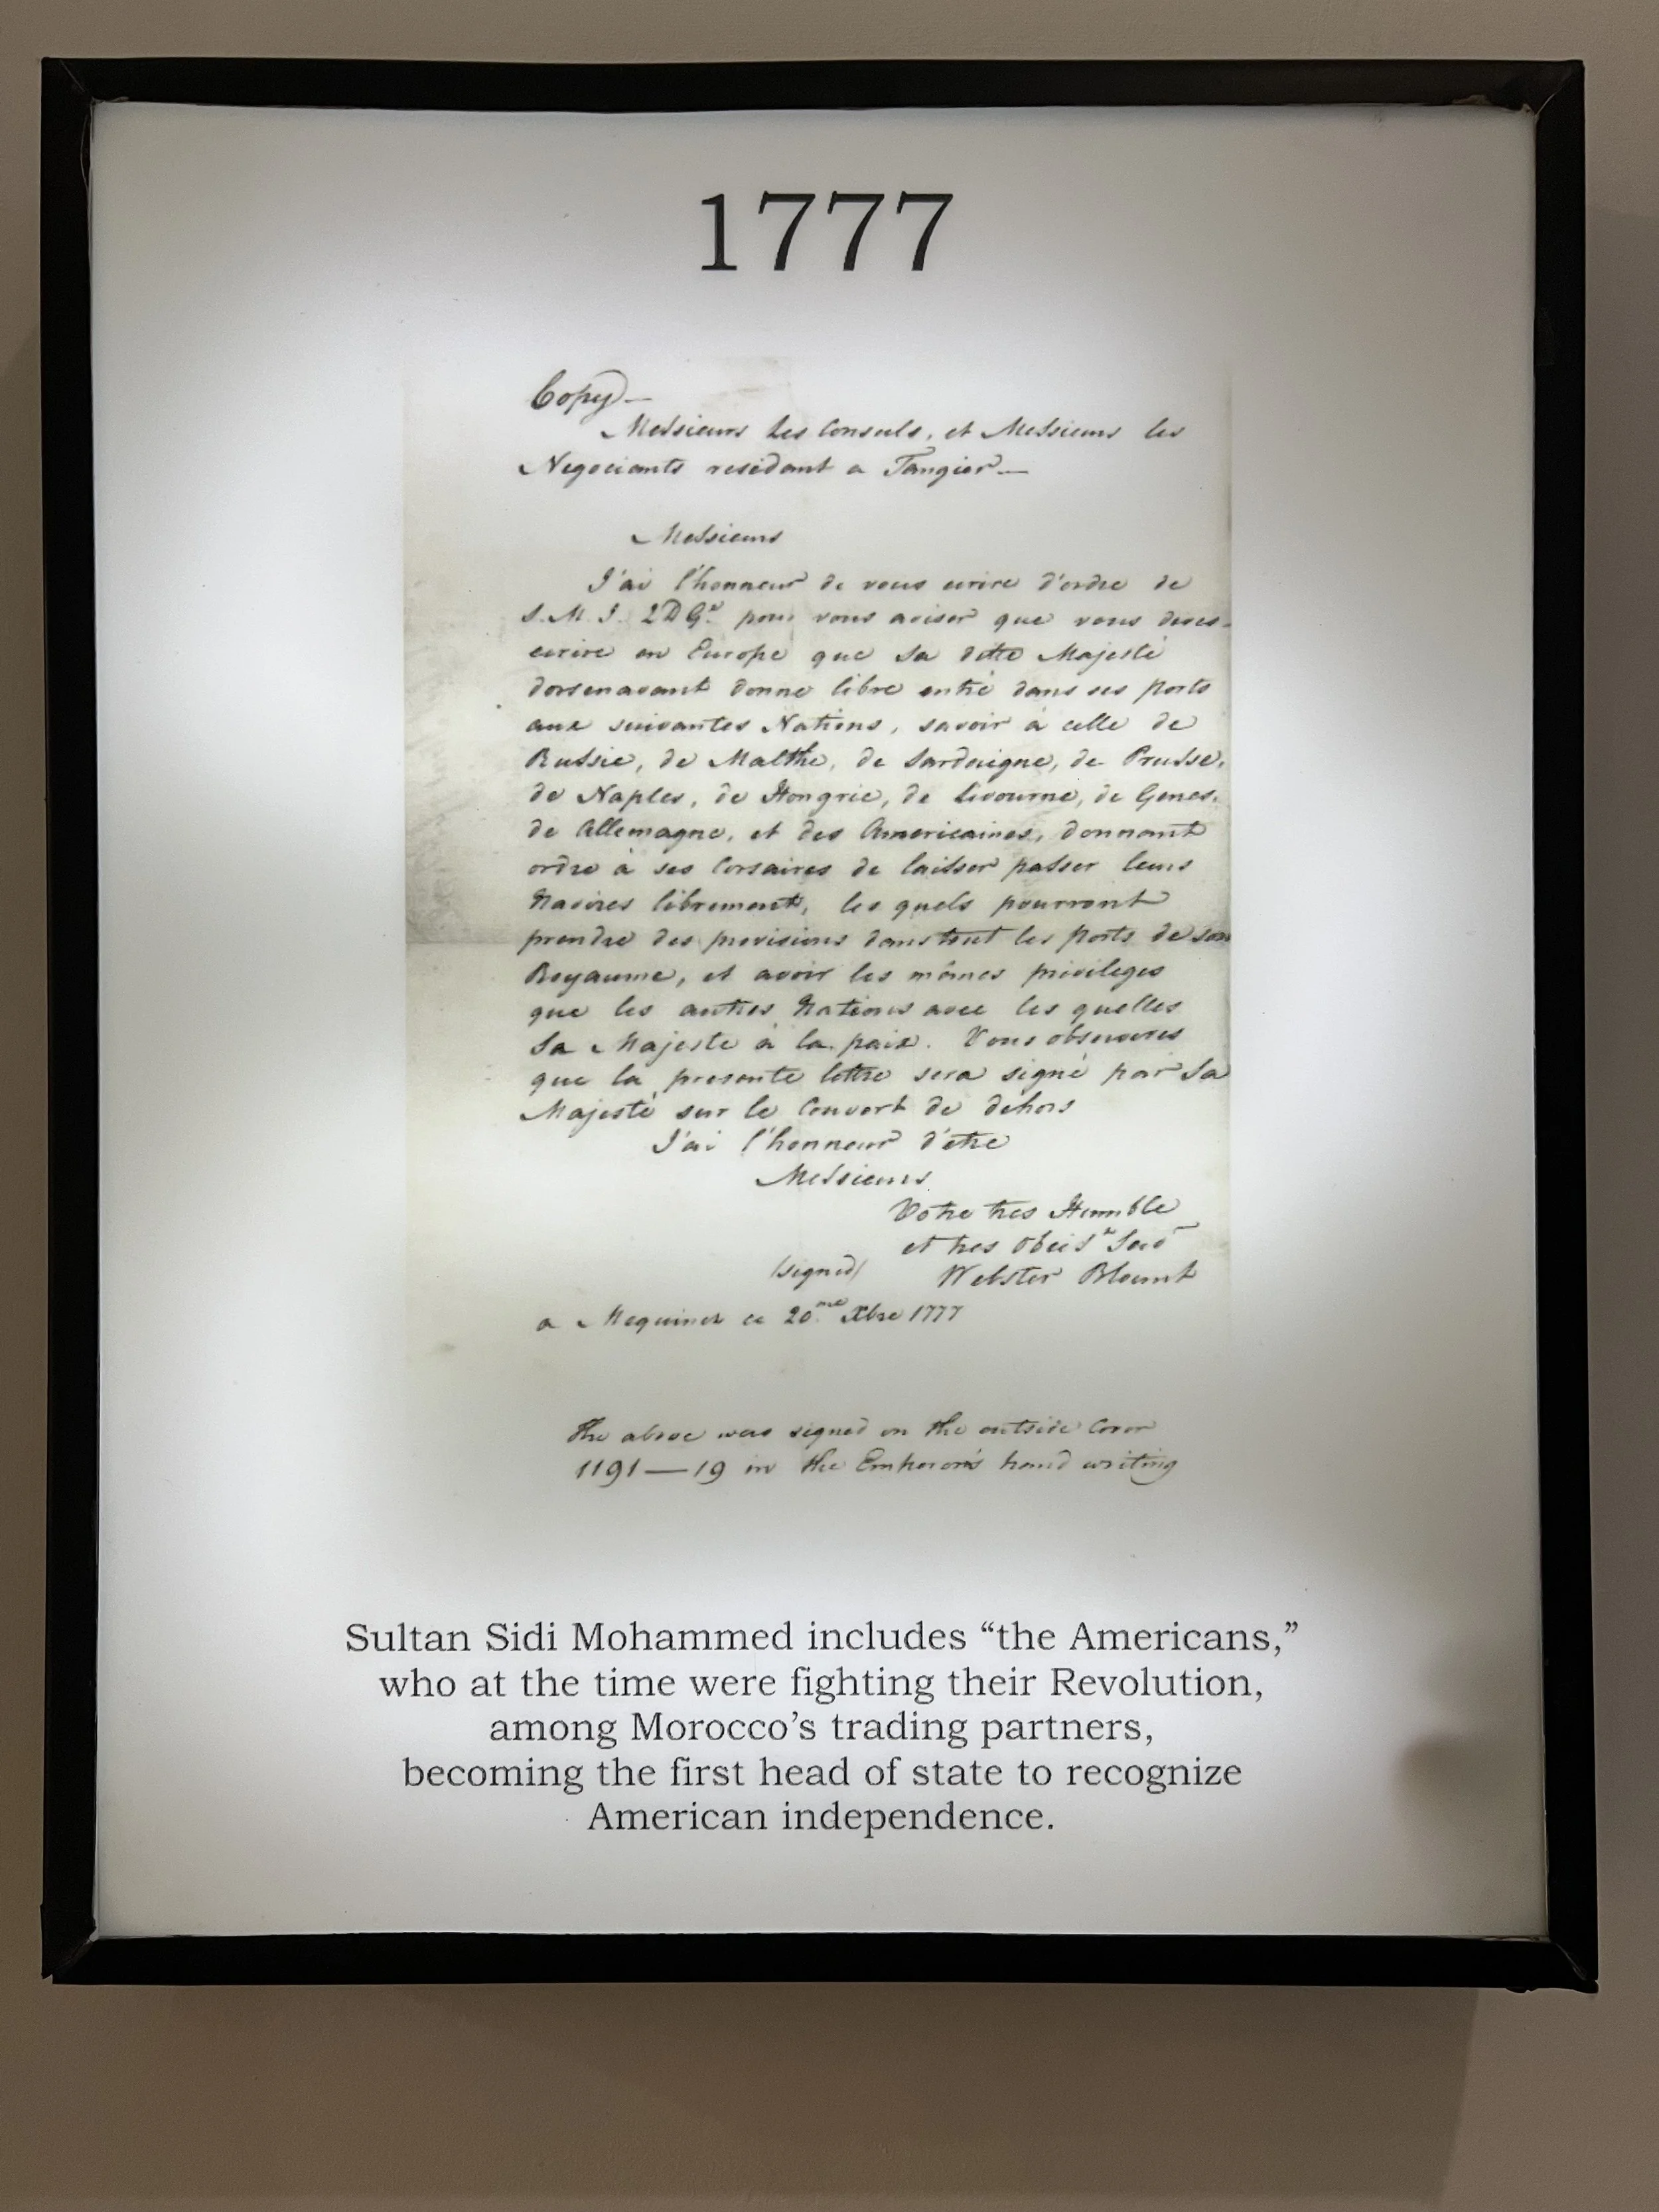 1777
Copy —
Messieurs Les Consuls, et Messieurs les
Negociants residant a Tangier —
Messieurs
J'ai l'honneur de vous ecrire d'ordre de
S. M. I. pour vous aviser que vous deves
ecrire en Europe que Sa ditte Majesté
dorsenavant donne libre entré dans ses Ports
aux suivantes Nations, savoir à celle de
Russie, de Malthe, de Sardaigne, de Prusse,
de Naples, de Hongrie, de Livourne, de Genes,
de Allemagne, et des Americaines, donnant
ordre à ses Corsaires de laisser passer leurs
Navires librement, les quels pourront
prendre des provisions dans tout les Ports de son
Royaume, et avoir les mêmes privileges
que les autres Nations avec les quelles
Sa Majeste à la paix. Vous observeres
que la presente lettre sera signé par Sa
Majesté sur le Couvert de dehors
J'ai l'honneur d'etre
Messieurs
Votre tres Humble
et tres
(signed) Webster Blount
a Mequinez ce 20.me Xbre 1777
The above was signed on the outside Cover
1191—19 in the Emperor's hand writing
Sultan Sidi Mohammed includes “the Americans,”
who at the time were fighting their Revolution,
among Morocco’s trading partners,
becoming the first head of state to recognize
American independence.